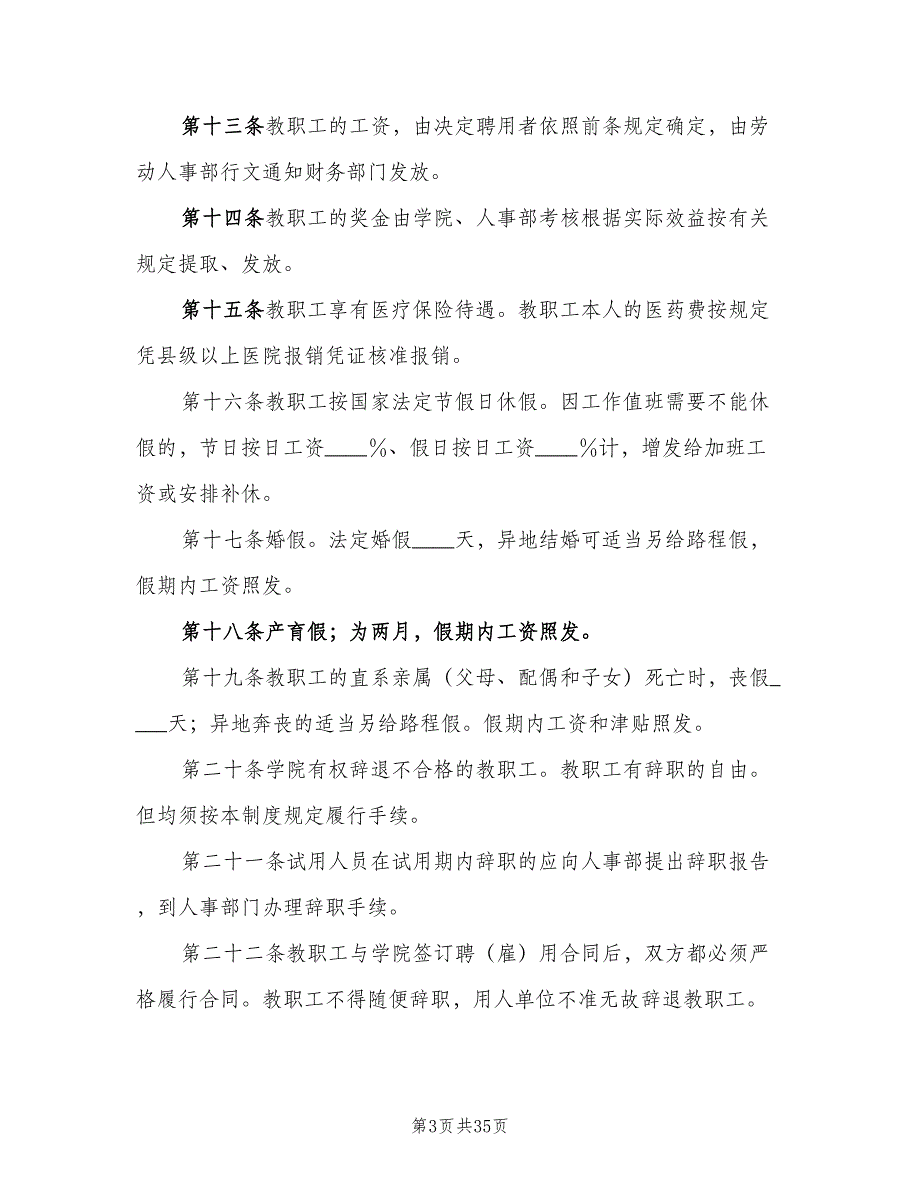 第十三条教职工的工资，由决定聘用者依照前条规定确定，由劳
动人事部行文通知财务部门发放。
第十四条教职工的奖金由学院、人事部考核根据实际效益按有关
规定提取、发放。
第十五条教职工享有医疗保险待遇。教职工本人的医药费按规定
凭县级以上医院报销凭证核准报销。
第十六条教职工按国家法定节假日休假。因工作值班需要不能休
假的，节日按日工资____%、假日按日工资____%计，增发给加班工
资或安排补休。
第十七条婚假。法定婚假____天，异地结婚可适当另给路程假，
假期内工资照发。
第十八条产育假；为两月，假期内工资照发。
第十九条教职工的直系亲属（父母、配偶和子女）死亡时，丧假_
___天；异地奔丧的适当另给路程假。假期内工资和津贴照发。
第二十条学院有权辞退不合格的教职工。教职工有辞职的自由。
但均须按本制度规定履行手续。
第二十一条试用人员在试用期内辞职的应向人事部提出辞职报告
，到人事部门办理辞职手续。
第二十二条教职工与学院签订聘（雇）用合同后，双方都必须严
格履行合同。教职工不得随便辞职，用人单位不准无故辞退教职工。
第3页共35页